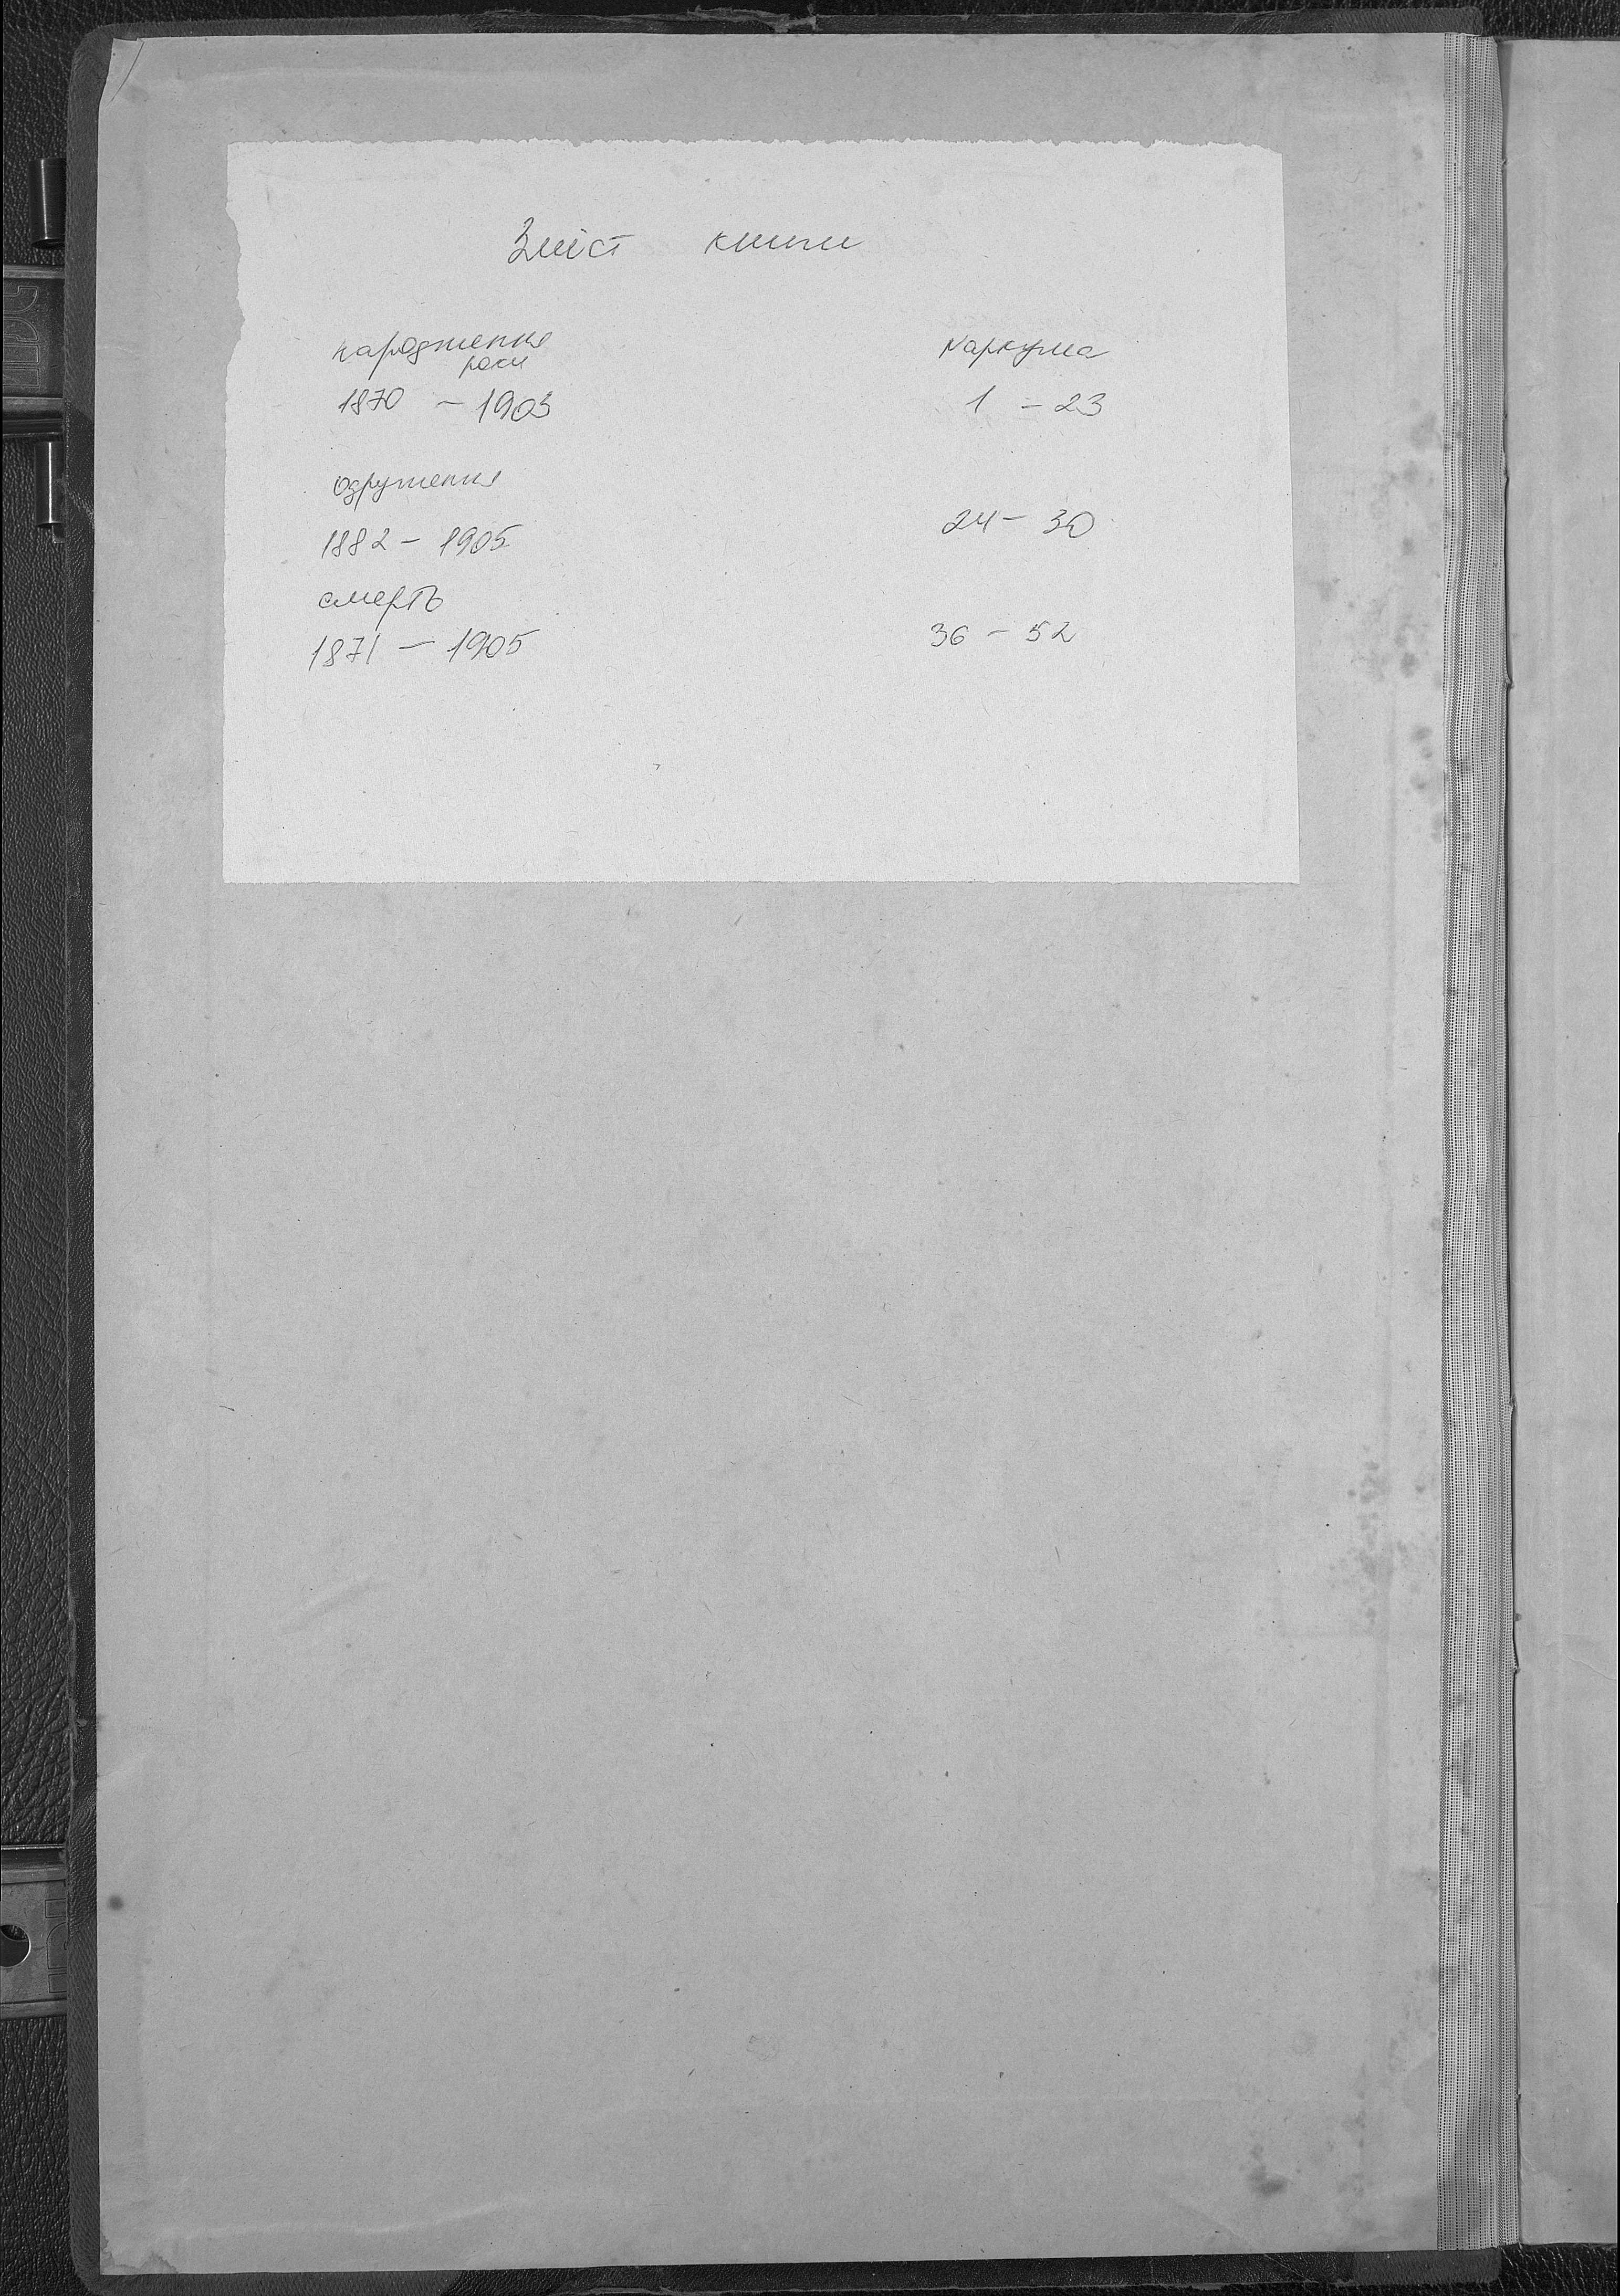 Зміст книги
народження №аркуша
роки
1870 – 1903 1 – 23
одруження
1882 – 1905 24 – 30
смерть
1871 – 1905 36 – 52